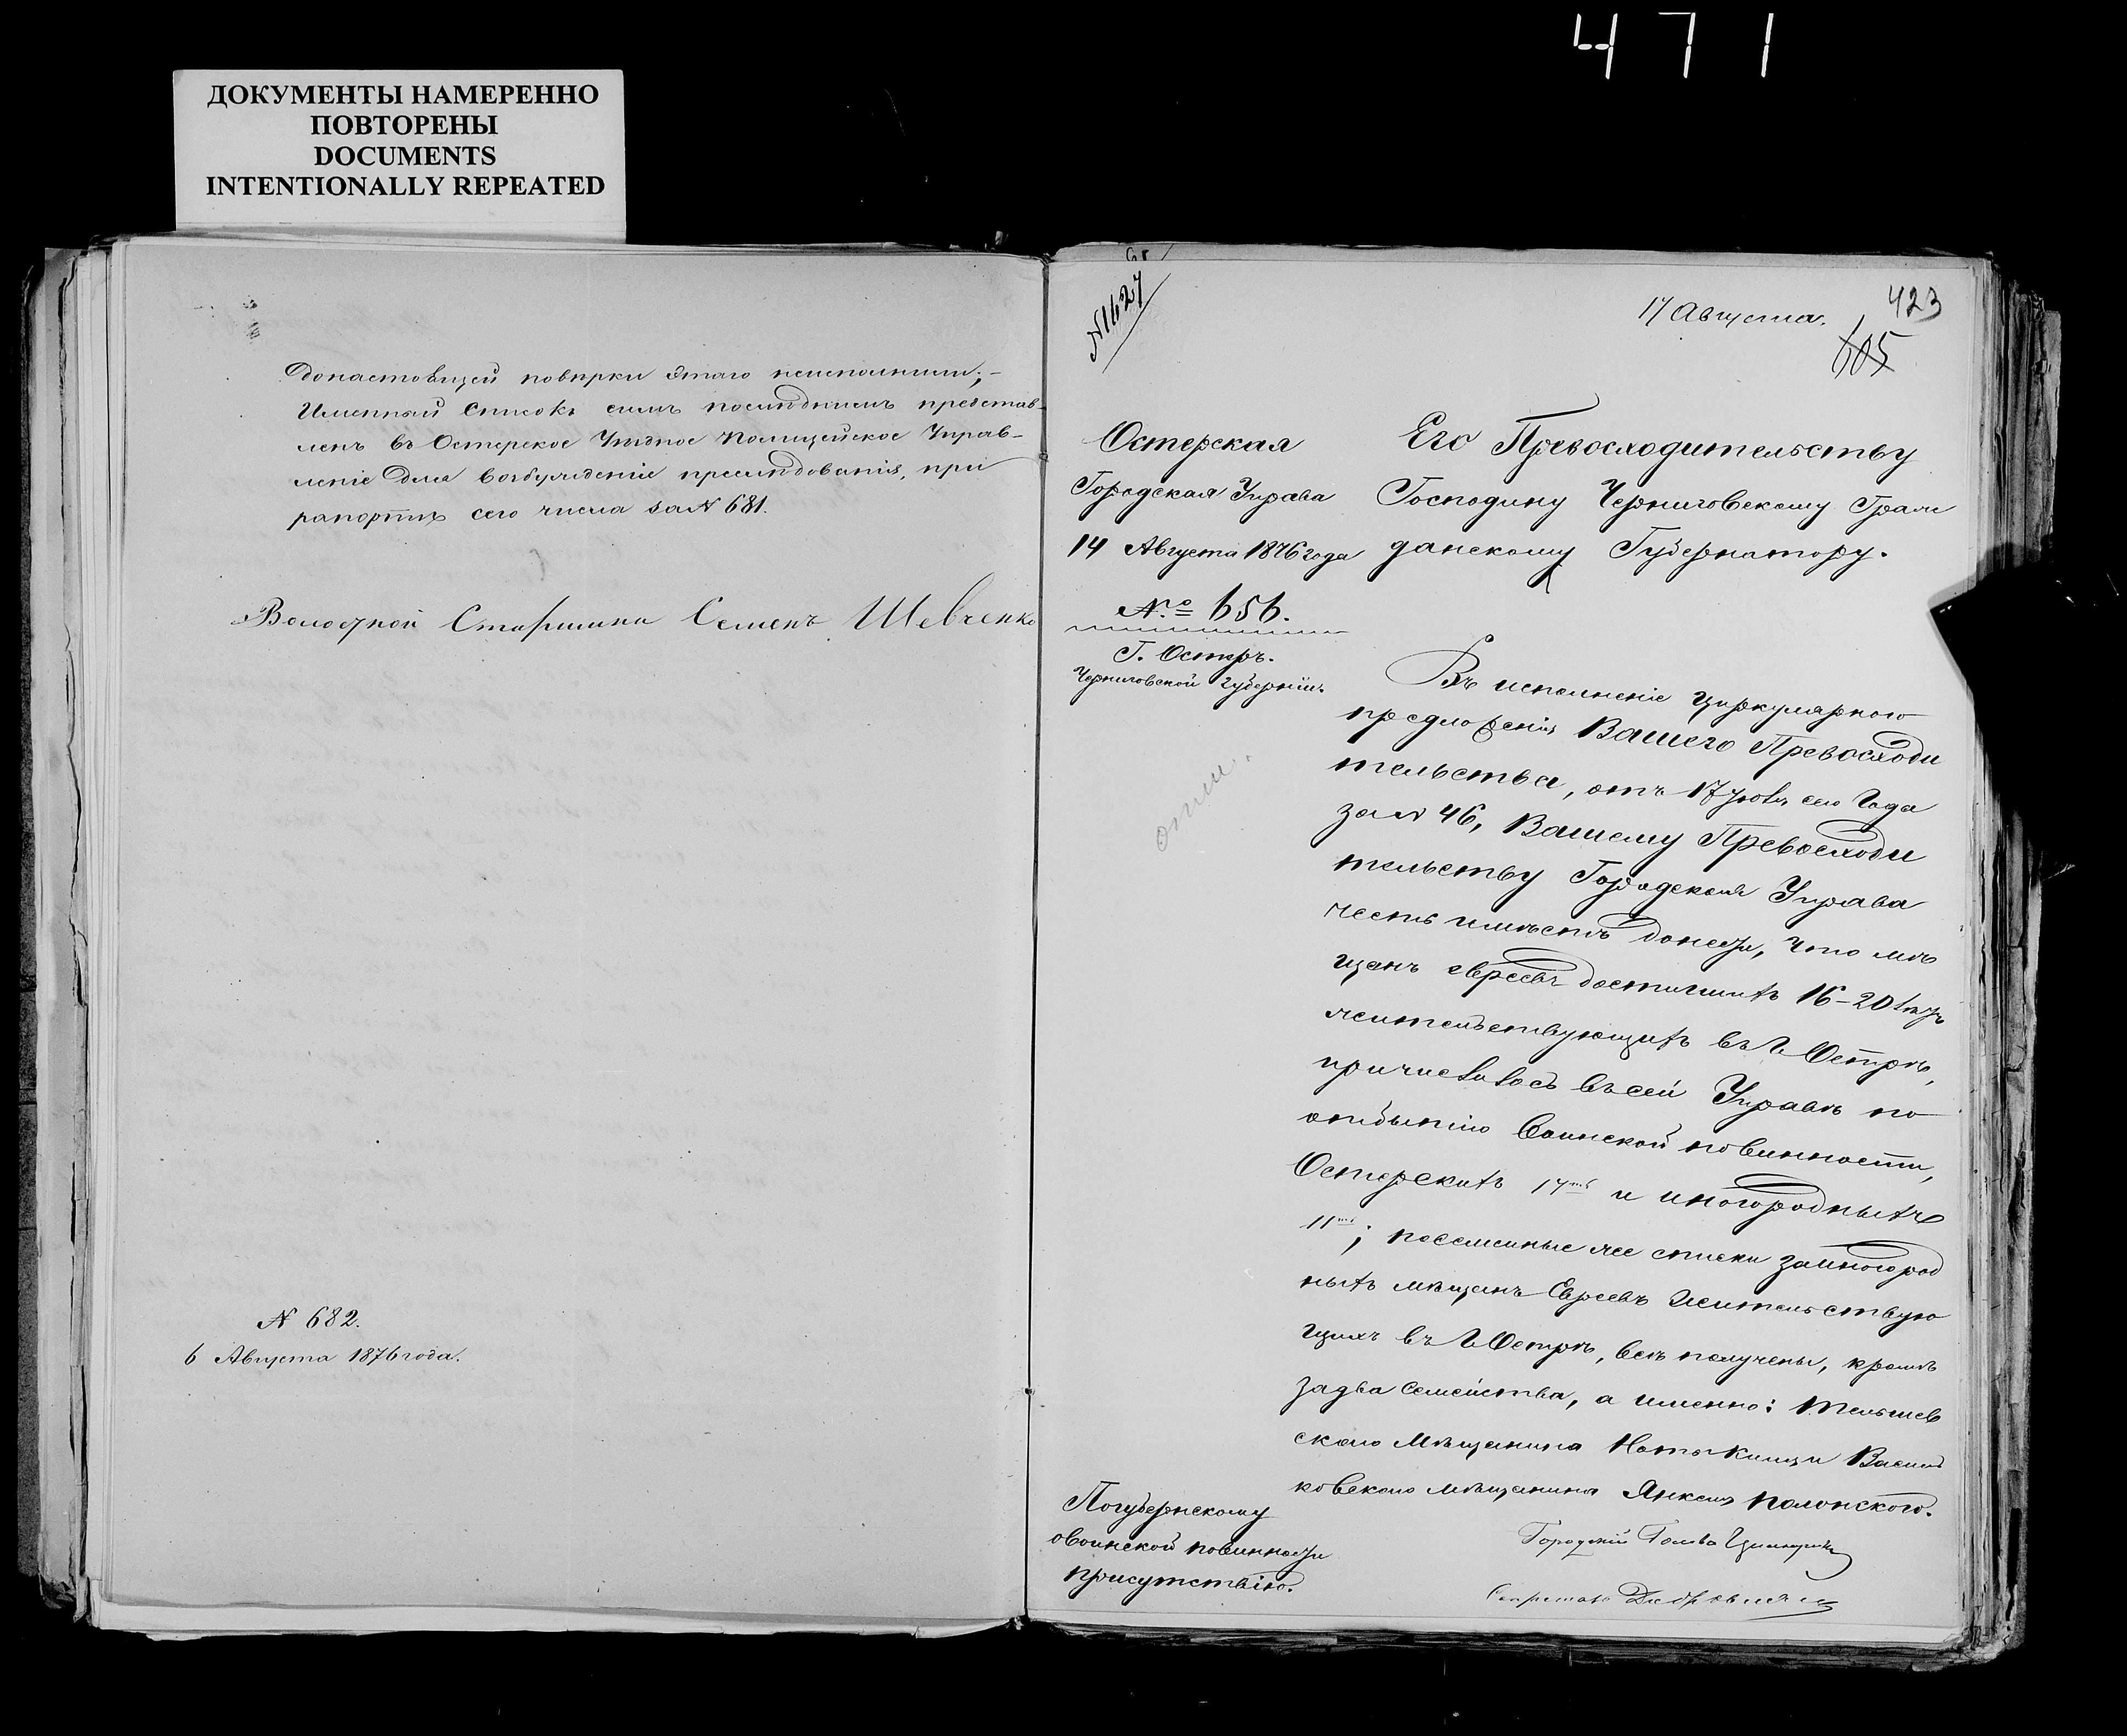 471
ДОКУМЕНТЫ НАМЕРЕННО
ПОВТОРЕНЫ
DOCUMENTS
INTENTIONALLY REPEATED
донастоящей повѣрки этаго неисполнили;-
Именный списокъ симъ послѣднимъ представ-
ленъ въ Остерское Уѣздное Полицейское Управ-
леніе для возбужденіе преслѣдованія, при
рапортѣ сего числа за N 681.
Волостной Старшина Семенъ Шевченко
N 682.
6 Августа 1876 года.
N 1627
17 Августа.
423
605
Остерская
Городская Управа
14 Августа 1876 года
№ 656.
Г. Остеръ.
Черниговской губерніи.
Его Превосходительству
Господину Черниговскому Граж
данскому Губернатору.
Въ исполненіе циркулярного
предложенія Вашего Превосходи
тельства, отъ 17 сего Года
за N 46, Вашему Превосходи
тельству Городская Управа
честь имѣетъ донести, что мѣ
щанъ евреевъ достигшихъ 16-20 лѣтъ
жительствующихъ въ Г Острѣ,
причислилось въ сей Управѣ по
отбытію воинской повинности,
Остерскихъ 17ть и иногородныхъ
11ть; посемейные же списки за иногород
ныхъ мѣщанъ Евреевъ жительствую
щихъ въ Г Острѣ, всѣ получены, кромѣ
за два семейства, а именно:
скаго Мѣщанина и Василь
ковскаго мѣщанина Янкеля Полонского.
Городской Голова
Секретарь
По губернскому
о воинской повинности
присутствію.